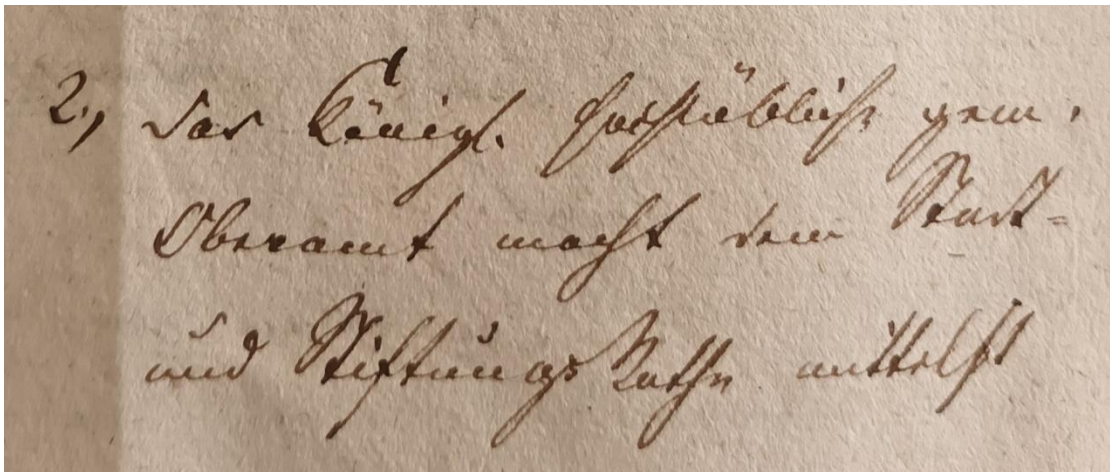 2., Das Königl. hochlöbliche gem.
Oberamt macht dem Stadt-
und StiftungsRathe mittelst